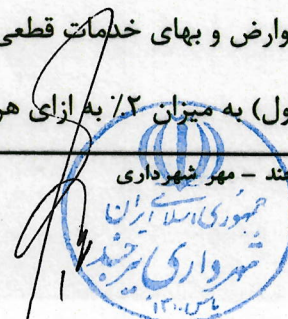 وارض و بهای خدمات قطعی
ول) به میزان ۲٪ به ازای هر
جند – مهر شهرداری
جمهوری اسلامی ایران
شهرداری بیرجند